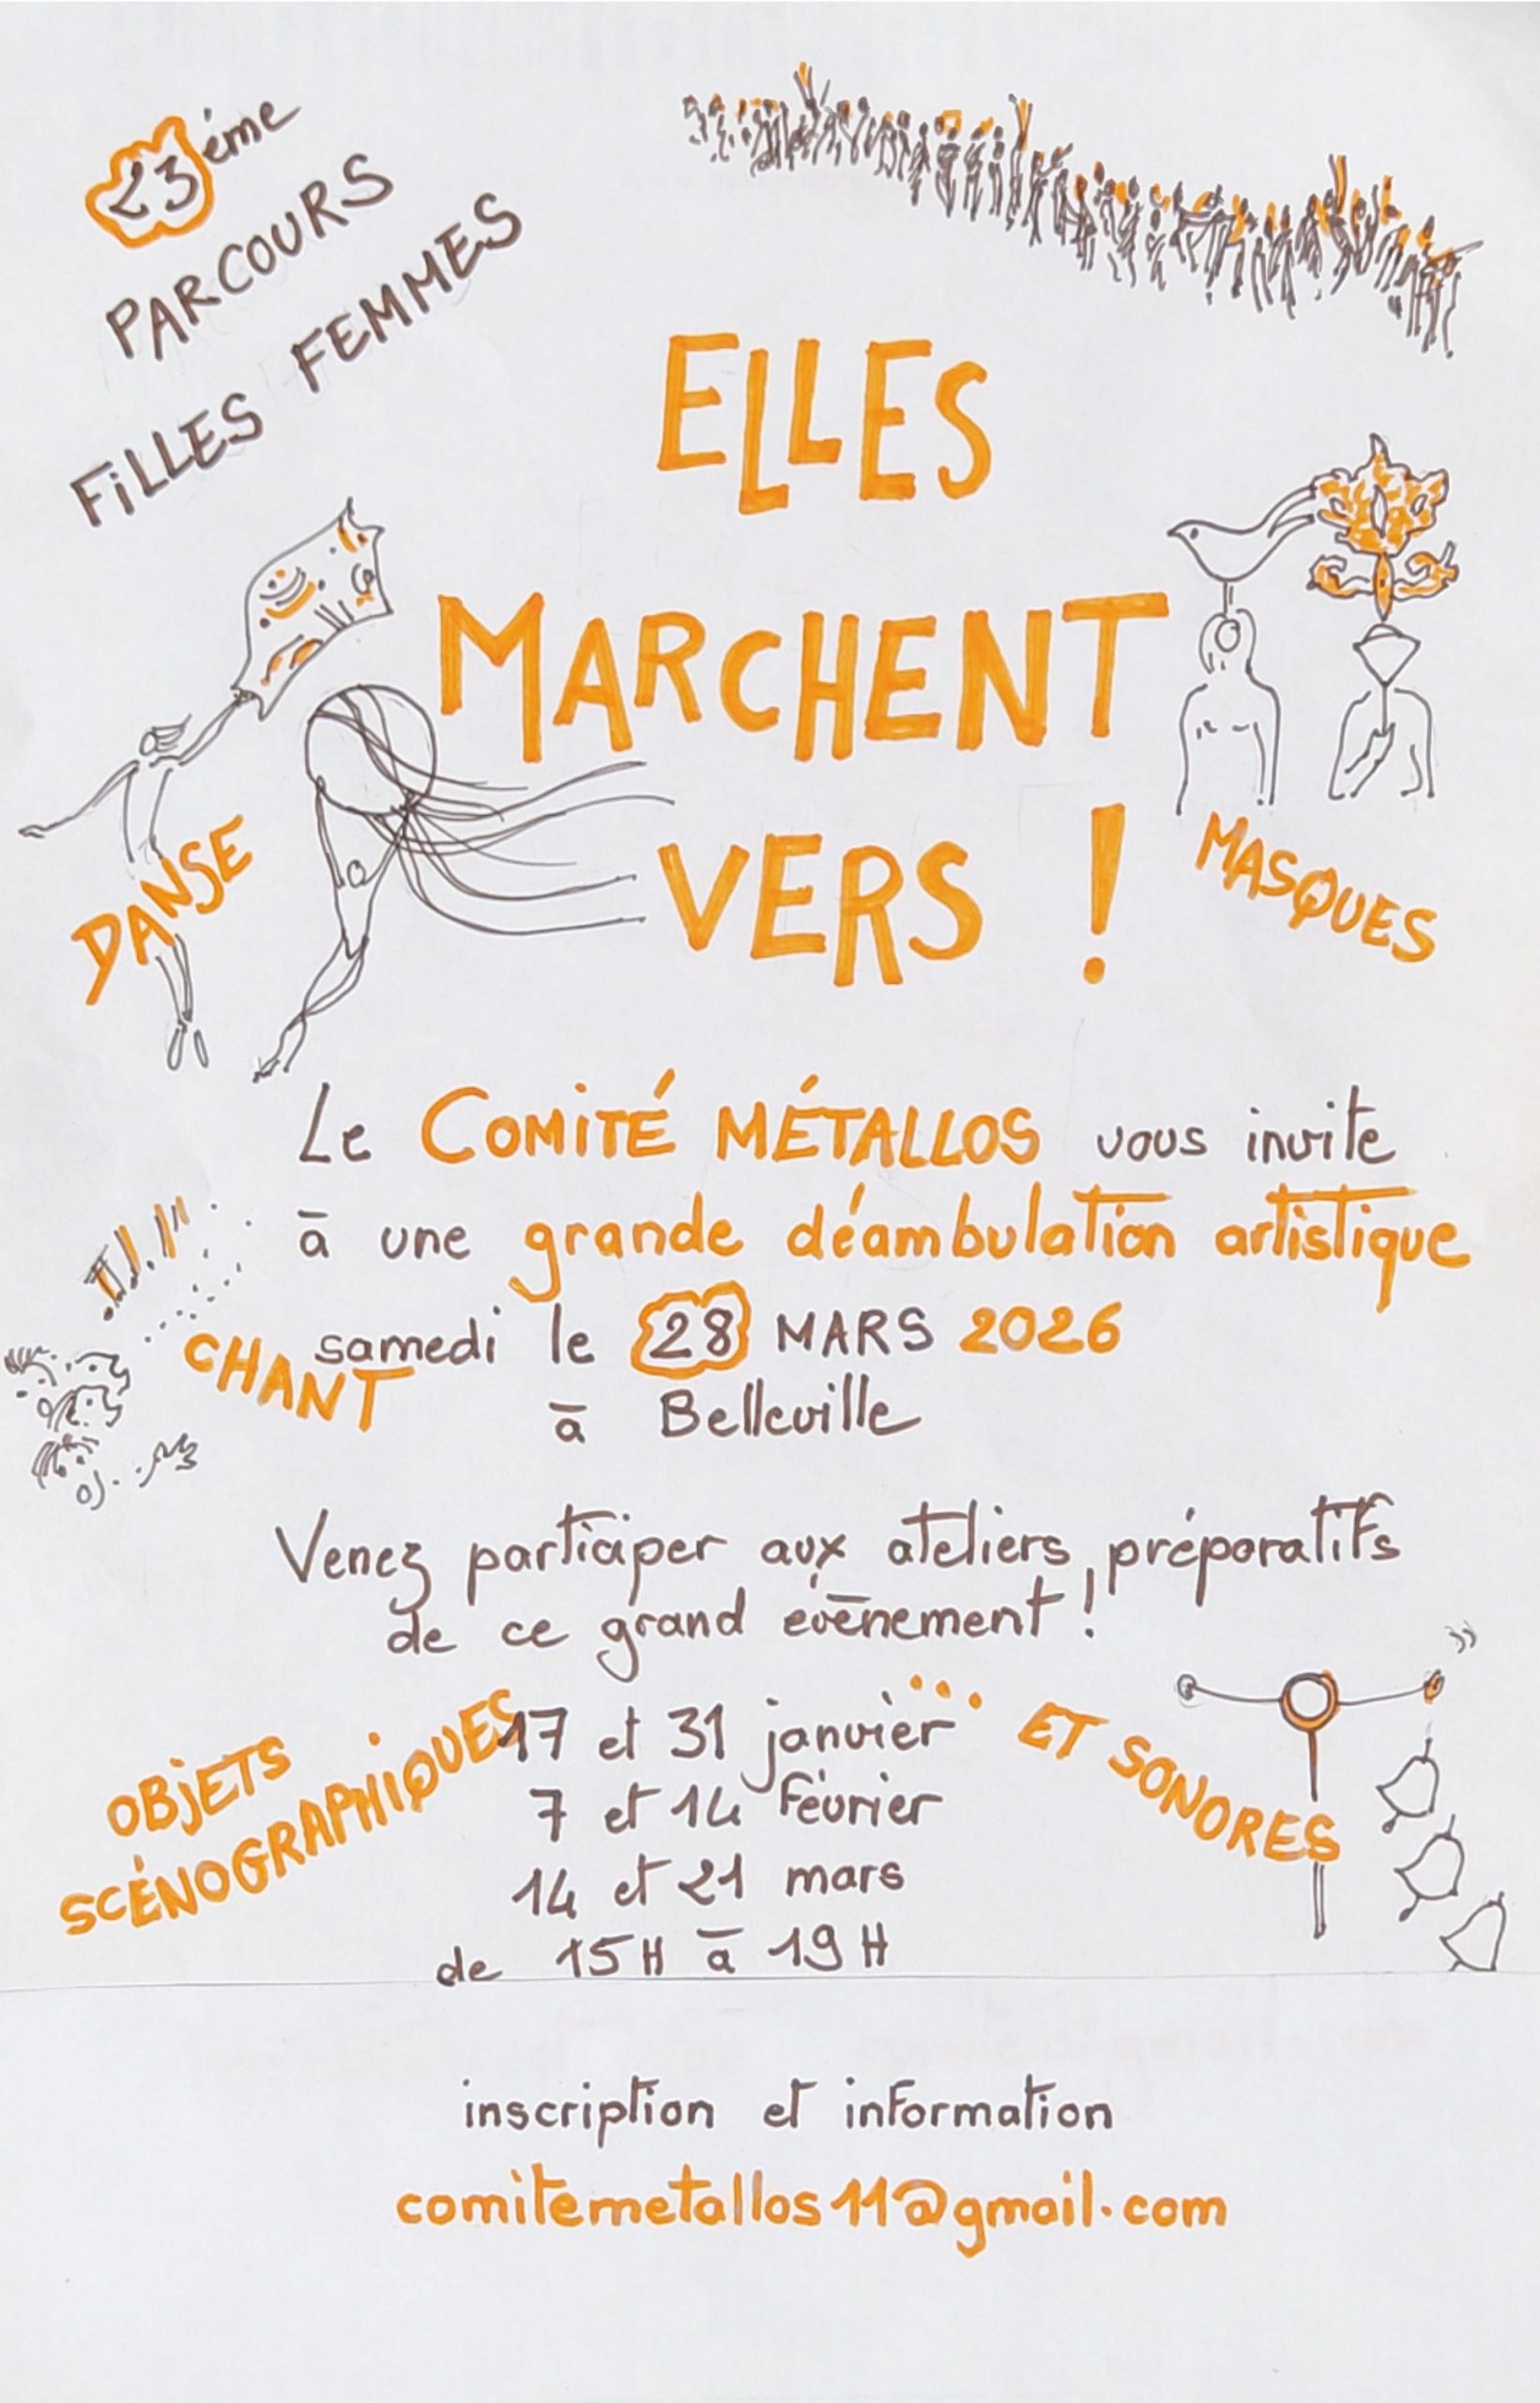 23ème
PARCOURS
FILLES FEMMES
ELLES
MARCHENT
VERS !
DANSE
MASQUES
Le COMITÉ MÉTALLOS vous invite
à une grande déambulation artistique
samedi le 28 MARS 2026
CHANT
à Belleville
Venez participer aux ateliers, préparatifs
de ce grand évènement !
OBJETS
SCÉNOGRAPHIQUES
... ET SONORES
17 et 31 janvier
7 et 14 février
14 et 21 mars
de 15H à 19H
inscription et information
comitemetallos11@gmail.com